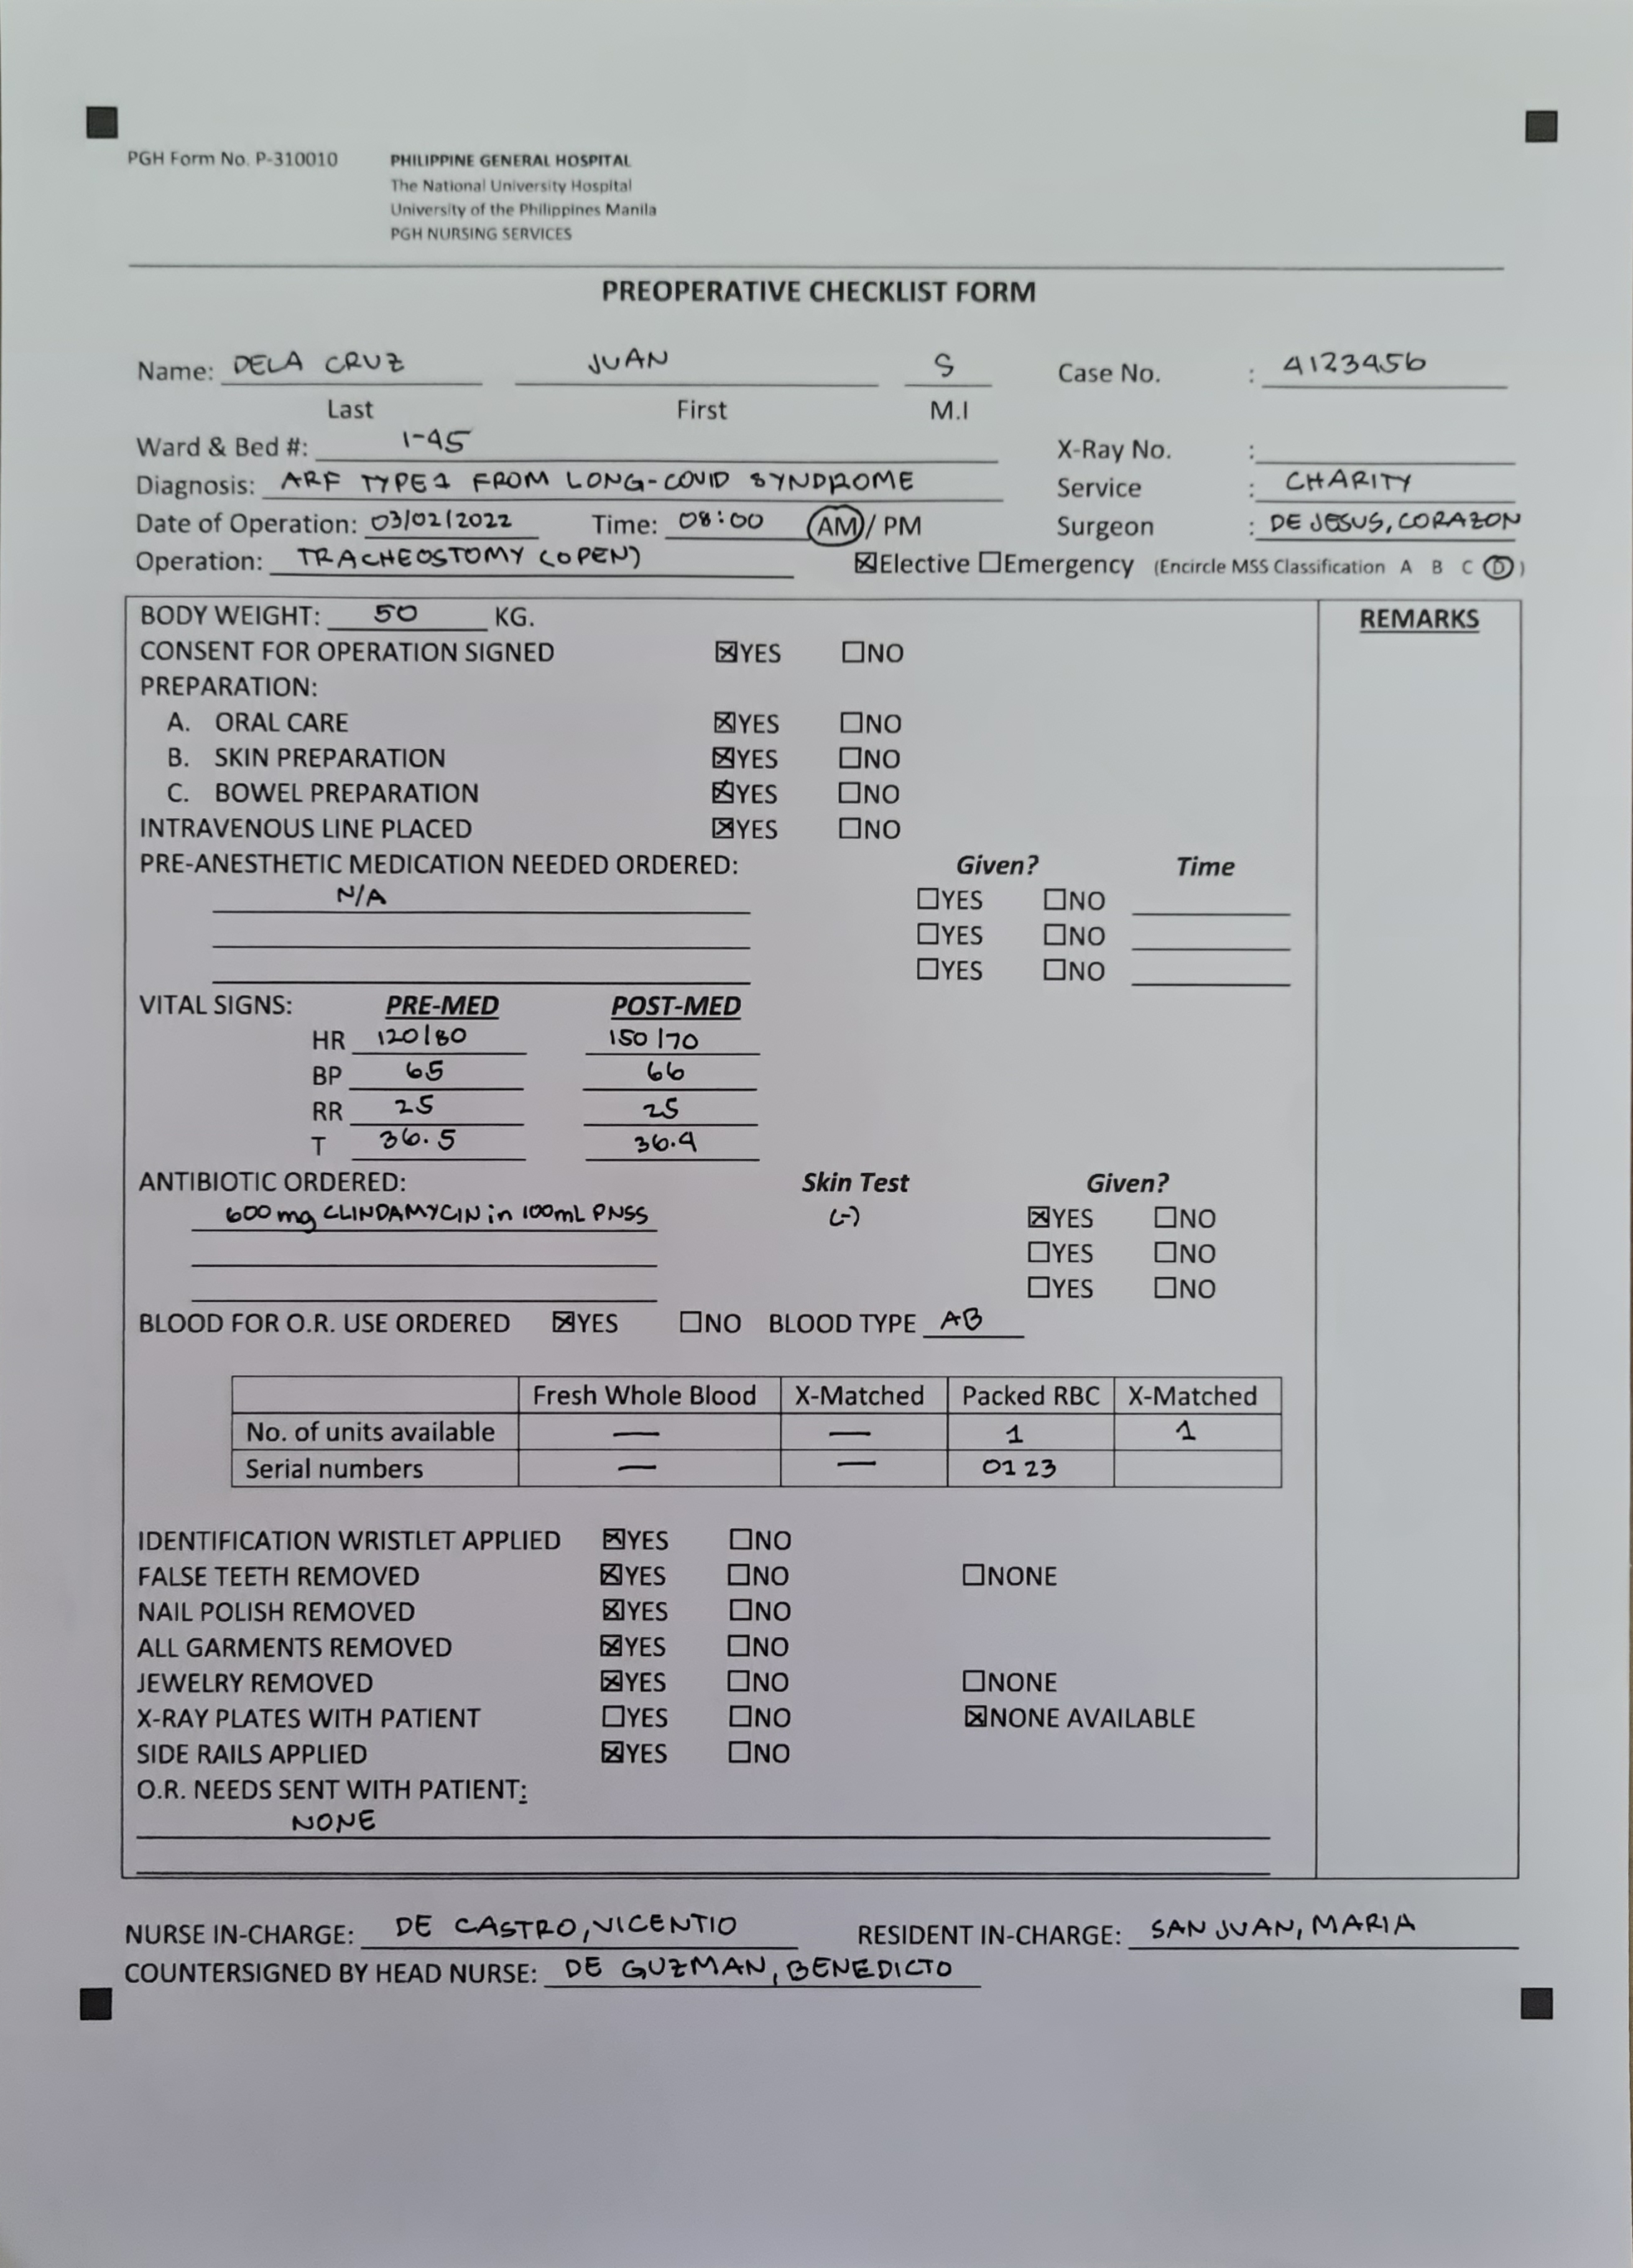 PGH Form No. P-310010
PHILIPPINE GENERAL HOSPITAL
The National University Hospital
University of the Philippines Manila
PGH NURSING SERVICES
PREOPERATIVE CHECKLIST FORM
Name: DELA CRUZ JUAN S Case No. : 4123456
Last First M.I
Ward & Bed #: 1-45 X-Ray No. :
Diagnosis: ARF TYPE 1 FROM LONG-COVID SYNDROME Service : CHARITY
Date of Operation: 03/02/2022 Time: 08:00 AM / PM Surgeon : DE JESUS, CORAZON
Operation: TRACHEOSTOMY (OPEN) ☒Elective ☐Emergency (Encircle MSS Classification A B C D )
BODY WEIGHT: 50 KG. REMARKS
CONSENT FOR OPERATION SIGNED ☒YES ☐NO
PREPARATION:
A. ORAL CARE ☒YES ☐NO
B. SKIN PREPARATION ☒YES ☐NO
C. BOWEL PREPARATION ☒YES ☐NO
INTRAVENOUS LINE PLACED ☒YES ☐NO
PRE-ANESTHETIC MEDICATION NEEDED ORDERED: Given? Time
N/A ☐YES ☐NO
☐YES ☐NO
☐YES ☐NO
VITAL SIGNS: PRE-MED POST-MED
HR 120/80 150/70
BP 65 66
RR 25 25
T 36.5 36.4
ANTIBIOTIC ORDERED: Skin Test Given?
600 mg CLINDAMYCIN in 100mL PNSS (-) ☒YES ☐NO
☐YES ☐NO
☐YES ☐NO
BLOOD FOR O.R. USE ORDERED ☒YES ☐NO BLOOD TYPE AB
Fresh Whole Blood X-Matched Packed RBC X-Matched
No. of units available — — 1 1
Serial numbers — — 0123
IDENTIFICATION WRISTLET APPLIED ☒YES ☐NO
FALSE TEETH REMOVED ☒YES ☐NO ☐NONE
NAIL POLISH REMOVED ☒YES ☐NO
ALL GARMENTS REMOVED ☒YES ☐NO
JEWELRY REMOVED ☒YES ☐NO ☐NONE
X-RAY PLATES WITH PATIENT ☐YES ☐NO ☒NONE AVAILABLE
SIDE RAILS APPLIED ☒YES ☐NO
O.R. NEEDS SENT WITH PATIENT:
NONE
NURSE IN-CHARGE: DE CASTRO, VICENTIO RESIDENT IN-CHARGE: SAN JUAN, MARIA
COUNTERSIGNED BY HEAD NURSE: DE GUZMAN, BENEDICTO